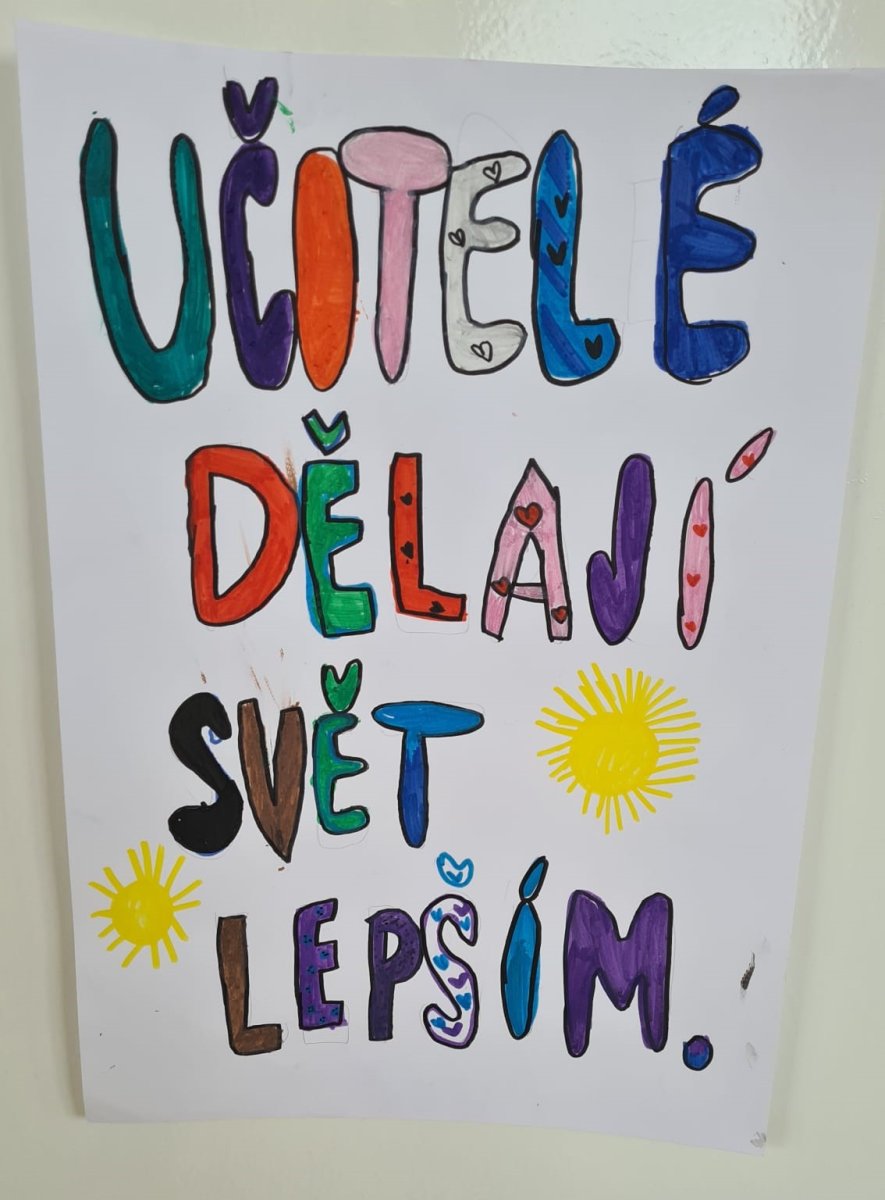 UČITELÉ
DĚLAJÍ
SVĚT
LEPŠÍM.